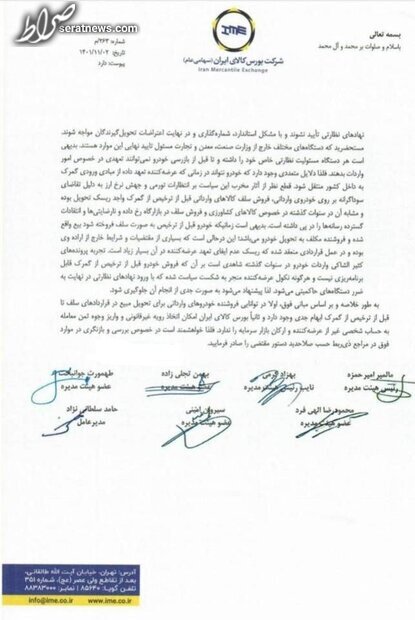 صراط
seratnews.com
بسمه تعالی
باسلام و صلوات بر محمد و آل محمد
IME
شرکت بورس کالای ایران (سهامی عام)
Iran Mercantile Exchange
شماره: ۲۶۳/م
تاریخ: ۱۴۰۱/۱۱/۰۲
پیوست: دارد
نهادهای نظارتی تأیید نشوند و با مشکل استاندارد، شماره‌گذاری و در نهایت اعتراضات تحویل‌گیرندگان مواجه شوند.
مستحضرید که دستگاه‌های مختلف خارج از وزارت صنعت، معدن و تجارت مسئول تایید نهایی این موارد هستند. بدیهی
است هر دستگاه مسئولیت نظارتی خاص خود را داشته و تا قبل از بازرسی خودرو نمی‌توانند تعهدی در خصوص امور
واردات بدهند. فلذا دلایل متعددی وجود دارد که خودرو نتواند در زمانی که عرضه‌کننده تعهد داده از مبادی ورودی گمرک
به داخل کشور منتقل شود. قطع نظر از آثار مخرب این سیاست بر انتظارات تورمی و جهش نرخ ارز به دلیل تقاضای
سوداگرانه بر روی خودروی وارداتی، فروش سلف کالاهای وارداتی قبل از ترخیص از گمرک واجد ریسک تحویل بوده
و مشابه آن در سنوات گذشته در خصوص کالاهای کشاورزی و فروش سلف در بازارگاه رخ داده و نارضایتی‌ها و انتقادات
گسترده رسانه‌ها را در پی داشته است. بدیهی است زمانیکه خودرو قبل از ترخیص به صورت سلف فروخته شود بیع واقع
شده و فروشنده مکلف به تحویل خودرو می‌باشد؛ این درحالی است که بسیاری از مقتضیات و شرایط خارج از اراده وی
بوده و در عمل قراردادی منعقد شده که ریسک عدم ایفای تعهد عرضه‌کننده در آن بسیار زیاد است. تجربه پرونده‌های
کثیر الشاکی واردات خودرو در سنوات گذشته شاهدی است بر آن که فروش خودرو قبل از ترخیص از گمرک قابل
برنامه‌ریزی نیست و هرگونه نکول عرضه‌کننده منجر به شکست سیاست شده که با ورود نهادهای نظارتی در نهایت به
ضرر دستگاه‌های حاکمیتی می‌شود. لذا پیشنهاد می‌شود به صورت جدی از انجام آن جلوگیری شود.
به طور خلاصه و بر اساس مبانی فوق، اولا در توانایی فروشنده خودروهای وارداتی برای تحویل مبیع در قراردادهای سلف تا
قبل از ترخیص از گمرک ابهام جدی وجود دارد و ثانیاً بورس کالای ایران امکان اتخاذ رویه غیرقانونی و واریز وجوه ثمن معامله
به حساب شخصی غیر از عرضه‌کننده و ارکان بازار سرمایه را ندارد. فلذا خواهشمند است در خصوص بررسی و بازنگری در موارد
فوق در مراجع ذی‌ربط حسب صلاحدید دستور مقتضی را صادر فرمایید.
مالمیر امیر حمزه
رئیس هیئت مدیره
نایب رئیس هیئت مدیره
بهمن تجلی زاده
عضو هیئت مدیره
طهمورث
عضو هیئت مدیره
محمودرضا الهی فرد
عضو هیئت مدیره
سیروان
عضو هیئت مدیره
حامد سلطانی نژاد
مدیرعامل
آدرس: تهران، خیابان آیت الله طالقانی،
بعد از تقاطع ولی عصر (عج)، شماره ۳۵۱
تلفن گویا: ۸۵۶۴۰ | نمابر: ۸۸۳۸۳۰۰۰
info@ime.co.ir
www.ime.co.ir